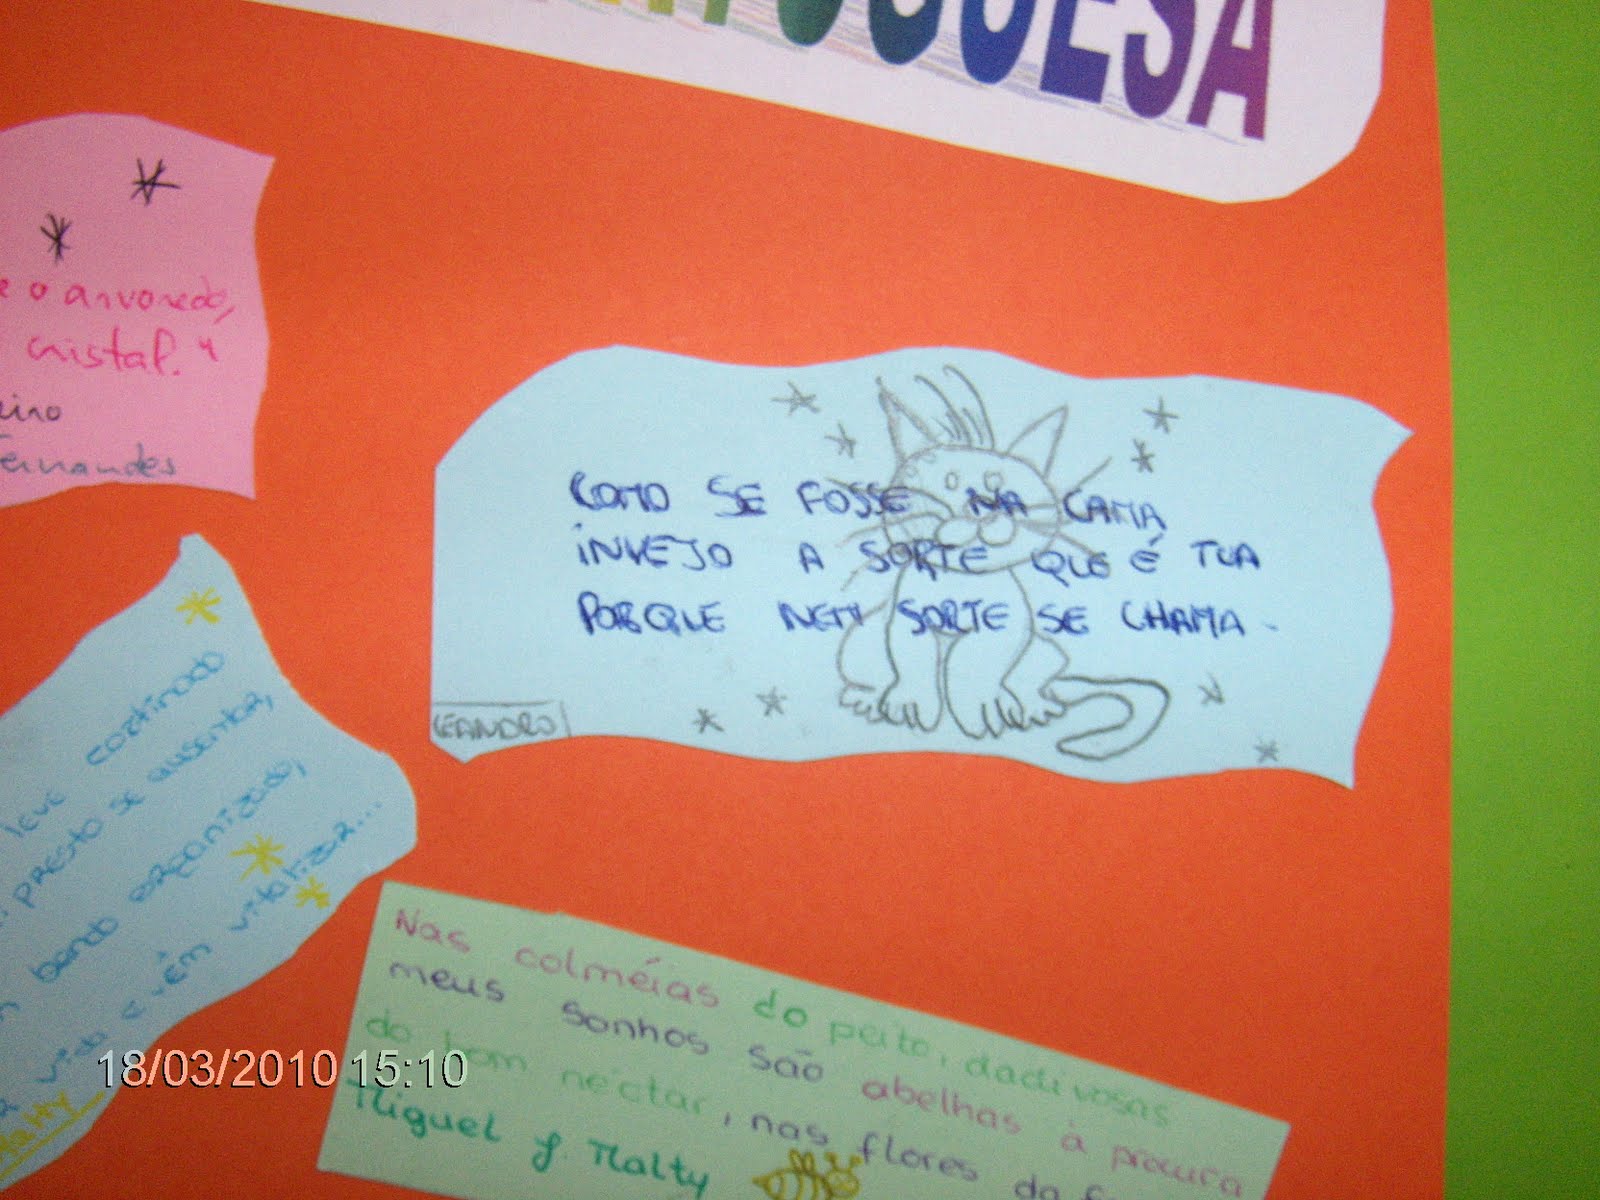 TUGUESA
e o arvoredo,
cristal."
eiro
Fernandes
COMO SE FOSSE NA CAMA
INVEJO A SORTE QUE É TUA
PORQUE NEM SORTE SE CHAMA.
LEANDRO
leve cortinado
presto se ausentar,
bando organizado,
vida e vêm vitalizar...
Malty
Nas colméias do peito, dadivosas
meus sonhos são abelhas à procura
do bom néctar, nas flores da
Miguel J. Malty
18/03/2010 15:10